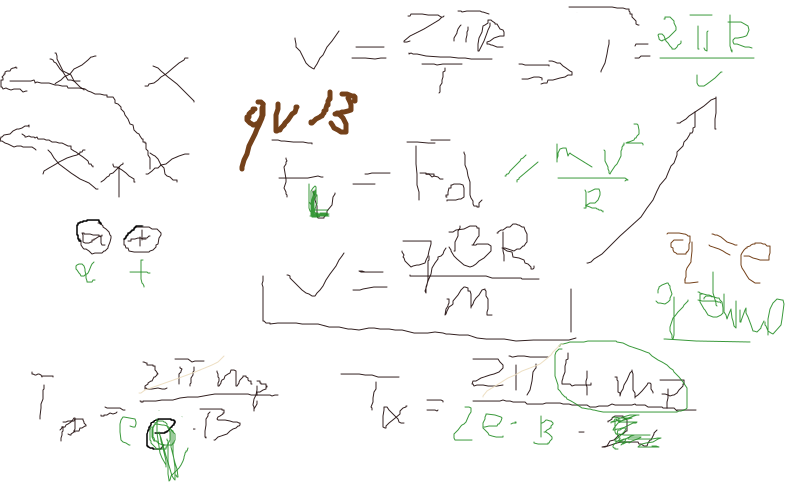 V = 2πR / T => T = 2πR / v
qvB
F_L = F_d // mv² / R
V = qBR / m
q = e
α +
T_p = 2π m_p / e · B
T_α = 2π 4 m_p / 2e · B ·